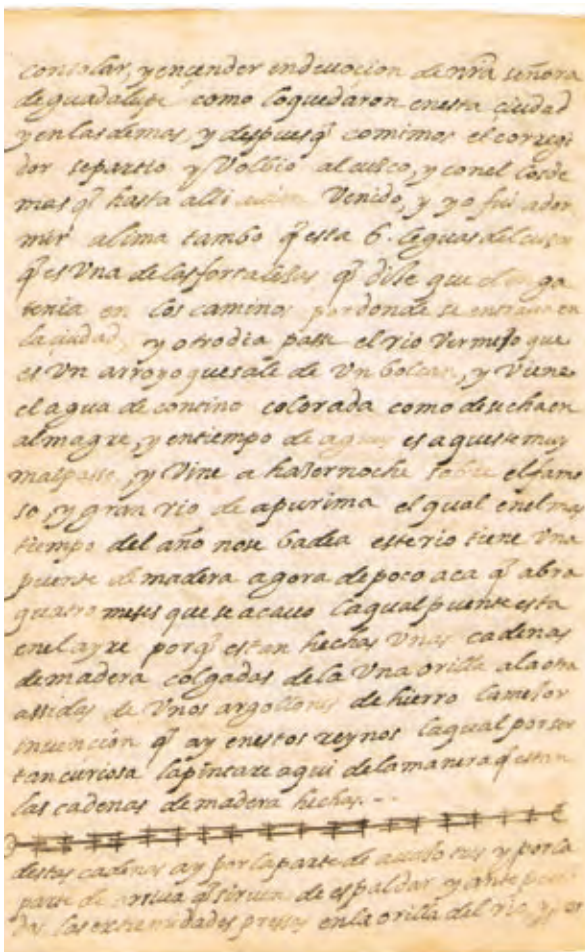 consolar, y ençender en deuocion de nrã señora
de guadalupe como lo quedaron en esta ciudad
y en las demas, y despues q̃ comimos el corregi
dor se partio y Volbio al cusco, y con el los de
mas q̃ hasta alli auian Venido, y yo fui a dor
mir a lima tambo q̃ esta 6. leguas del cusco
q̃ es Vna de las fortalesas q̃ dise que el inga
tenia en los caminos por donde se entraua en
la ciudad, y otro dia passe el rio Vermejo que
es Vn arroyo que sale de Vn bolcan, y Viene
el agua de contino colorada como desecha en
almagre, y en tiempo de aguas es aqueste muy
mal passo, y Vine a haser noche sobre el famo
so, y gran rio de apurima el qual en el mas
tiempo del año no se badea este rio tiene Vna
puente de madera agora de poco aca q̃ abra
quatro meses que se acauo la qual puente esta
en el ayre porq̃ estan hechas Vnas cadenas
de madera colgadas de la Vna orilla a la otra
assidas de Vnos argollones de hierro la mejor
inuención q̃ ay en estos reynos la qual por ser
tan curiosa la pintare aqui de la manera q̃ estan
las cadenas de madera hechas. - -
destas cadenas ay por la parte de auajo sus y por la
parte de arriua q̃ siruen de espaldar y ante
las extremidades presas en la orilla del rio,